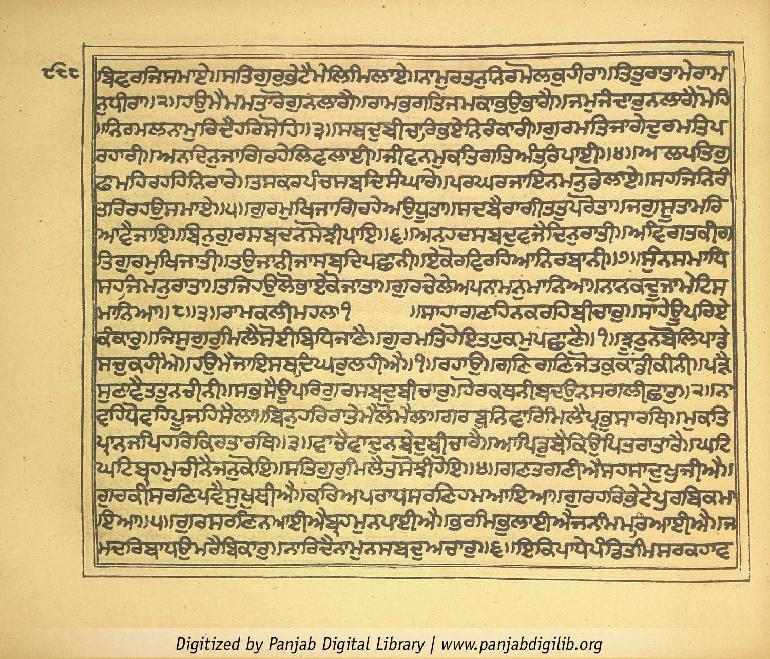 ੮੯੮
ਬਿਵਰਜਿਸਮਾਏ॥ਸਤਿਗੁਰੁਭੇਟੈਮੇਲਿਮਿਲਾਏ॥ਨਾਮੁਰਤਨੁਨਿਰਮੋਲਕੁਹੀਰਾ॥ਤਿਤੁਰਾਤਾਮੇਰਾਮ
ਨੁਧੀਰਾ॥੨॥ਹਉਮੈਮਮਤਾਰੋਗੁਨਲਾਗੈ॥ਰਾਮਭਗਤਿਜਮਕਾਭਉਭਾਗੈ॥ਜਮੁਜੰਦਾਰੁਨਲਾਗੈਮੋਹਿ
॥ਨਿਰਮਲਨਾਮੁਰਿਦੈਹਰਿਸੋਹਿ॥੩॥ਸਬਦੁਬੀਚਾਰਿਭਏਨਿਰੰਕਾਰੀ॥ਗੁਰਮਤਿਜਾਗੇਦੁਰਮਤਿਪ
ਰਹਾਰੀ॥ਅਨਦਿਨੁਜਾਗਿਰਹੇਲਿਵਲਾਈ॥ਜੀਵਨਮੁਕਤਿਗਤਿਅੰਤਰਿਪਾਈ॥੪॥ਅਲਪਤਿਗੁ
ਫਾਮਹਿਰਹਹਿਨਿਰਾਰੇ॥ਤਸਕਰਪੰਚਸਬਦਿਸੰਘਾਰੇ॥ਪਰਘਰਜਾਇਨਮਨੁਡੋਲਾਏ॥ਸਹਜਨਿਰੰ
ਤਰਿਰਹਉਸਮਾਏ॥੫॥ਗੁਰਮੁਖਿਜਾਗਿਰਹੇਅਉਧੂਤਾ॥ਸਦਬੈਰਾਗੀਤਤੁਪਰੋਤਾ॥ਜਗੁਸੂਤਾਮਰਿ
ਆਵੈਜਾਇ॥ਬਿਨੁਗੁਰਸਬਦਨਸੋਝੀਪਾਇ॥੬॥ਅਨਹਦਸਬਦੁਵਜੈਦਿਨੁਰਾਤੀ॥ਅਵਿਗਤਕੀਗ
ਤਿਗੁਰਮੁਖਿਜਾਤੀ॥ਤਉਜਾਨੀਜਾਸਬਦਿਪਛਾਨੀ॥ਏਕੋਰਵਿਰਹਿਆਨਿਰਬਾਨੀ॥੭॥ਸੁੰਨਸਮਾਧਿ
ਸਹਜਿਮਨੁਰਾਤਾ॥ਤਜਿਹਉਲੋਭਾਏਕੋਜਾਤਾ॥ਗੁਰਚੇਲੇਅਪਨਾਮਨੁਮਾਨਿਆ॥ਨਾਨਕਦੂਜਾਮੇਟਿਸ
ਮਾਨਿਆ॥੮॥੩॥ਰਾਮਕਲੀਮਹਲਾ੧ ॥ਸਾਹਾਗਣਹਿਨਕਰਹਿਬੀਚਾਰੁ॥ਸਾਹੇਊਪਰਿਏ
ਕੰਕਾਰੁ॥ਜਿਸੁਗੁਰੁਮਿਲੈਸੋਈਬਿਧਿਜਾਣੈ॥ਗੁਰਮਤਿਹੋਇਤਹੁਕਮੁਪਛਾਣੈ॥੧॥ਝੂਠੁਨਬੋਲਿਪਾਡੇ
ਸਚੁਕਹੀਐ॥ਹਉਮੈਜਾਇਸਬਦਿਘਰੁਲਹੀਐ॥੧॥ਰਹਾਉ॥ਗਣਿਗਣਿਜੋਤਕੁਕਾਂਡੀਕੀਨੀ॥ਪੜੈ
ਸੁਣਾਵੈਤਤੁਨਚੀਨੀ॥ਸਭਸੈਊਪਰਿਗੁਰਸਬਦੁਬੀਚਾਰੁ॥ਹੋਰਕਥਨੀਬਦਉਨਸਗਲੀਛਾਰੁ॥੨॥ਨਾ
ਵਹਿਧੋਵਹਿਪੂਜਹਿਸੈਲਾ॥ਬਿਨੁਹਰਿਰਾਤੇਮੈਲੋਮੈਲਾ॥ਗਰਬੁਨਿਵਾਰਿਮਿਲੈਪ੍ਰਭੁਸਾਰਥਿ॥ਮੁਕਤਿ
ਪ੍ਰਾਨਜਪਿਹਰਿਕਿਰਤਾਰਥਿ॥੩॥ਵਾਚੈਵਾਦੁਨਬੇਦੁਬੀਚਾਰੈ॥ਆਪਿਡੁਬੈਕਿਉਪਿਤਰਾਤਾਰੈ॥ਘਟਿ
ਘਟਿਬ੍ਰਹਮੁਚੀਨੈਜਨੁਕੋਇ॥ਸਤਿਗੁਰੁਮਿਲੈਤਸੋਝੀਹੋਇ॥੪॥ਗਣਤਗਣੀਐਸਹਸਾਦੁਖੁਜੀਐ॥
ਗੁਰਕੀਸਰਣਿਪਵੈਸੁਖੁਥੀਐ॥ਕਰਿਅਪਰਾਧਸਰਣਿਹਮਆਇਆ॥ਗੁਰਹਰਿਭੇਟੇਪੁਰਬਿਕਮਾ
ਇਆ॥੫॥ਗੁਰਸਰਣਿਨਆਈਐਬ੍ਰਹਮੁਨਪਾਈਐ॥ਭਰਮਿਭੁਲਾਈਐਜਨਮਿਮਰਿਆਈਐ॥ਜ
ਮਦਰਿਬਾਧਉਮਰੈਬਿਕਾਰੁ॥ਨਾਰਿਦੈਨਾਮੁਨਸਬਦੁਅਚਾਰੁ॥੬॥ਇਕਿਪਾਧੇਪੰਡਿਤਮਿਸਰਕਹਾਵ
Digitized by Panjab Digital Library | www.panjabdigilib.org